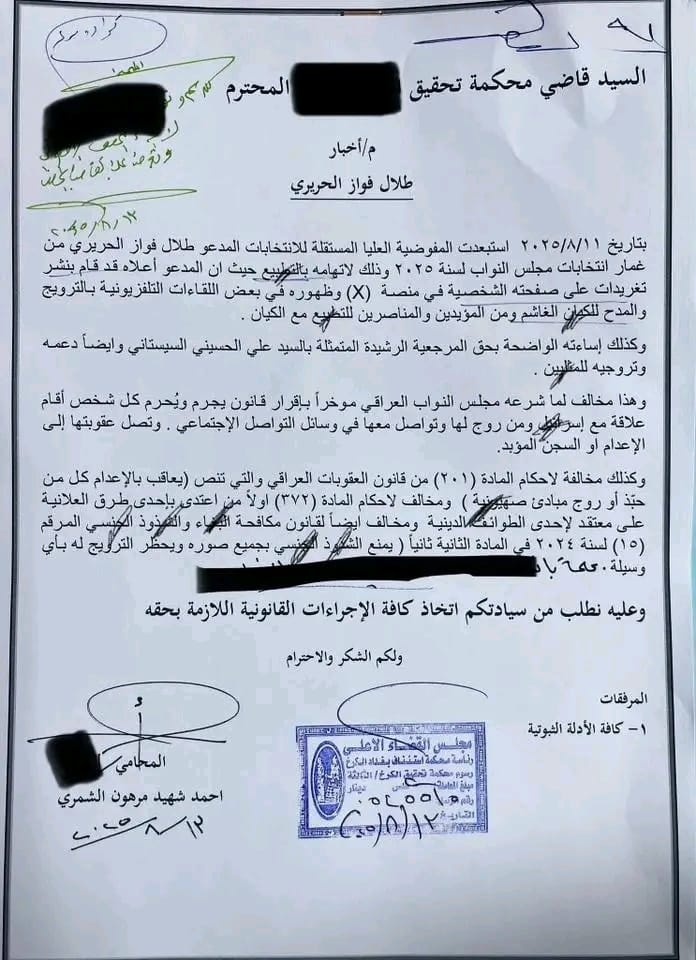 السيد قاضي محكمة تحقيق المحترم
م/أخبار
طلال فواز الحريري
بتاريخ ٢٠٢٥/٨/١١ استبعدت المفوضية العليا المستقلة للانتخابات المدعو طلال فواز الحريري من
غمار انتخابات مجلس النواب لسنة ٢٠٢٥ وذلك لاتهامه بالتطبيع حيث ان المدعو أعلاه قد قام بنشر
تغريدات على صفحته الشخصية في منصة (X) وظهوره في بعض اللقاءات التلفزيونية بالترويج
والمدح للكيان الغاشم ومن المؤيدين والمناصرين للتطبيع مع الكيان .
وكذلك إساءته الواضحة بحق المرجعية الرشيدة المتمثلة بالسيد علي الحسيني السيستاني وايضاً دعمه
وتروجيه للمثليين .
وهذا مخالف لما شرعه مجلس النواب العراقي موخراً بإقرار قانون يجرم ويُحرم كل شخص أقام
علاقة مع إسرائيل ومن روج لها وتواصل معها في وسائل التواصل الإجتماعي . وتصل عقوبتها إلى
الإعدام او السجن المؤبد.
وكذلك مخالفة لاحكام المادة (٢٠١) من قانون العقوبات العراقي والتي تنص (يعاقب بالإعدام كل من
حبّذ أو روج مبادئ صهيونية ) ومخالف لاحكام المادة (٣٧٢) اولاً من اعتدى بإحدى طرق العلانية
على معتقد لإحدى الطوائف الدينية ومخالف ايضاً لقانون مكافحة البغاء والشذوذ الجنسي المرقم
(١٥) لسنة ٢٠٢٤ في المادة الثانية ثانياً ( يمنع الشذوذ الجنسي بجميع صوره ويحظر الترويج له بأي
وسيلة
وعليه نطلب من سيادتكم اتخاذ كافة الإجراءات القانونية اللازمة بحقه
ولكم الشكر والاحترام
المرفقات
١- كافة الأدلة الثبوتية
المحامي
احمد شهيد مرهون الشمري
٢٠٢٥/٨/١٣
مجلس القضاء الاعلى
رئاسة محكمة استئناف بغداد الكرخ
رسوم محكمة تحقيق الكرخ / الثالثة
دينار